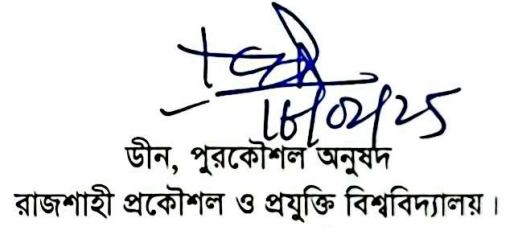 18/02/25
ডীন, পুরকৌশল অনুষদ
রাজশাহী প্রকৌশল ও প্রযুক্তি বিশ্ববিদ্যালয়।